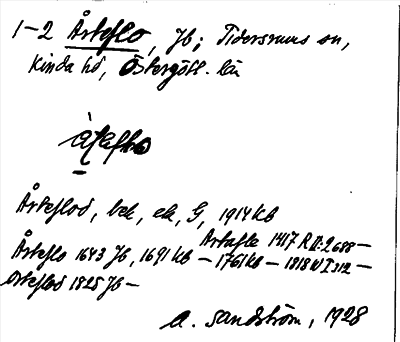 1-2 Årteflo, Jb; Tidersrums sn,
Kinda hd, Östergötl. län
Årteflod, bek, ek, G, 1914 kb
Årtafle 1417 R II:2688 —
Årteflo 1643 Jb, 1691 Kb — 1761 Kb — 1818 W I 312 —
Årteflod 1825 Jb —
A. Sandström, 1928